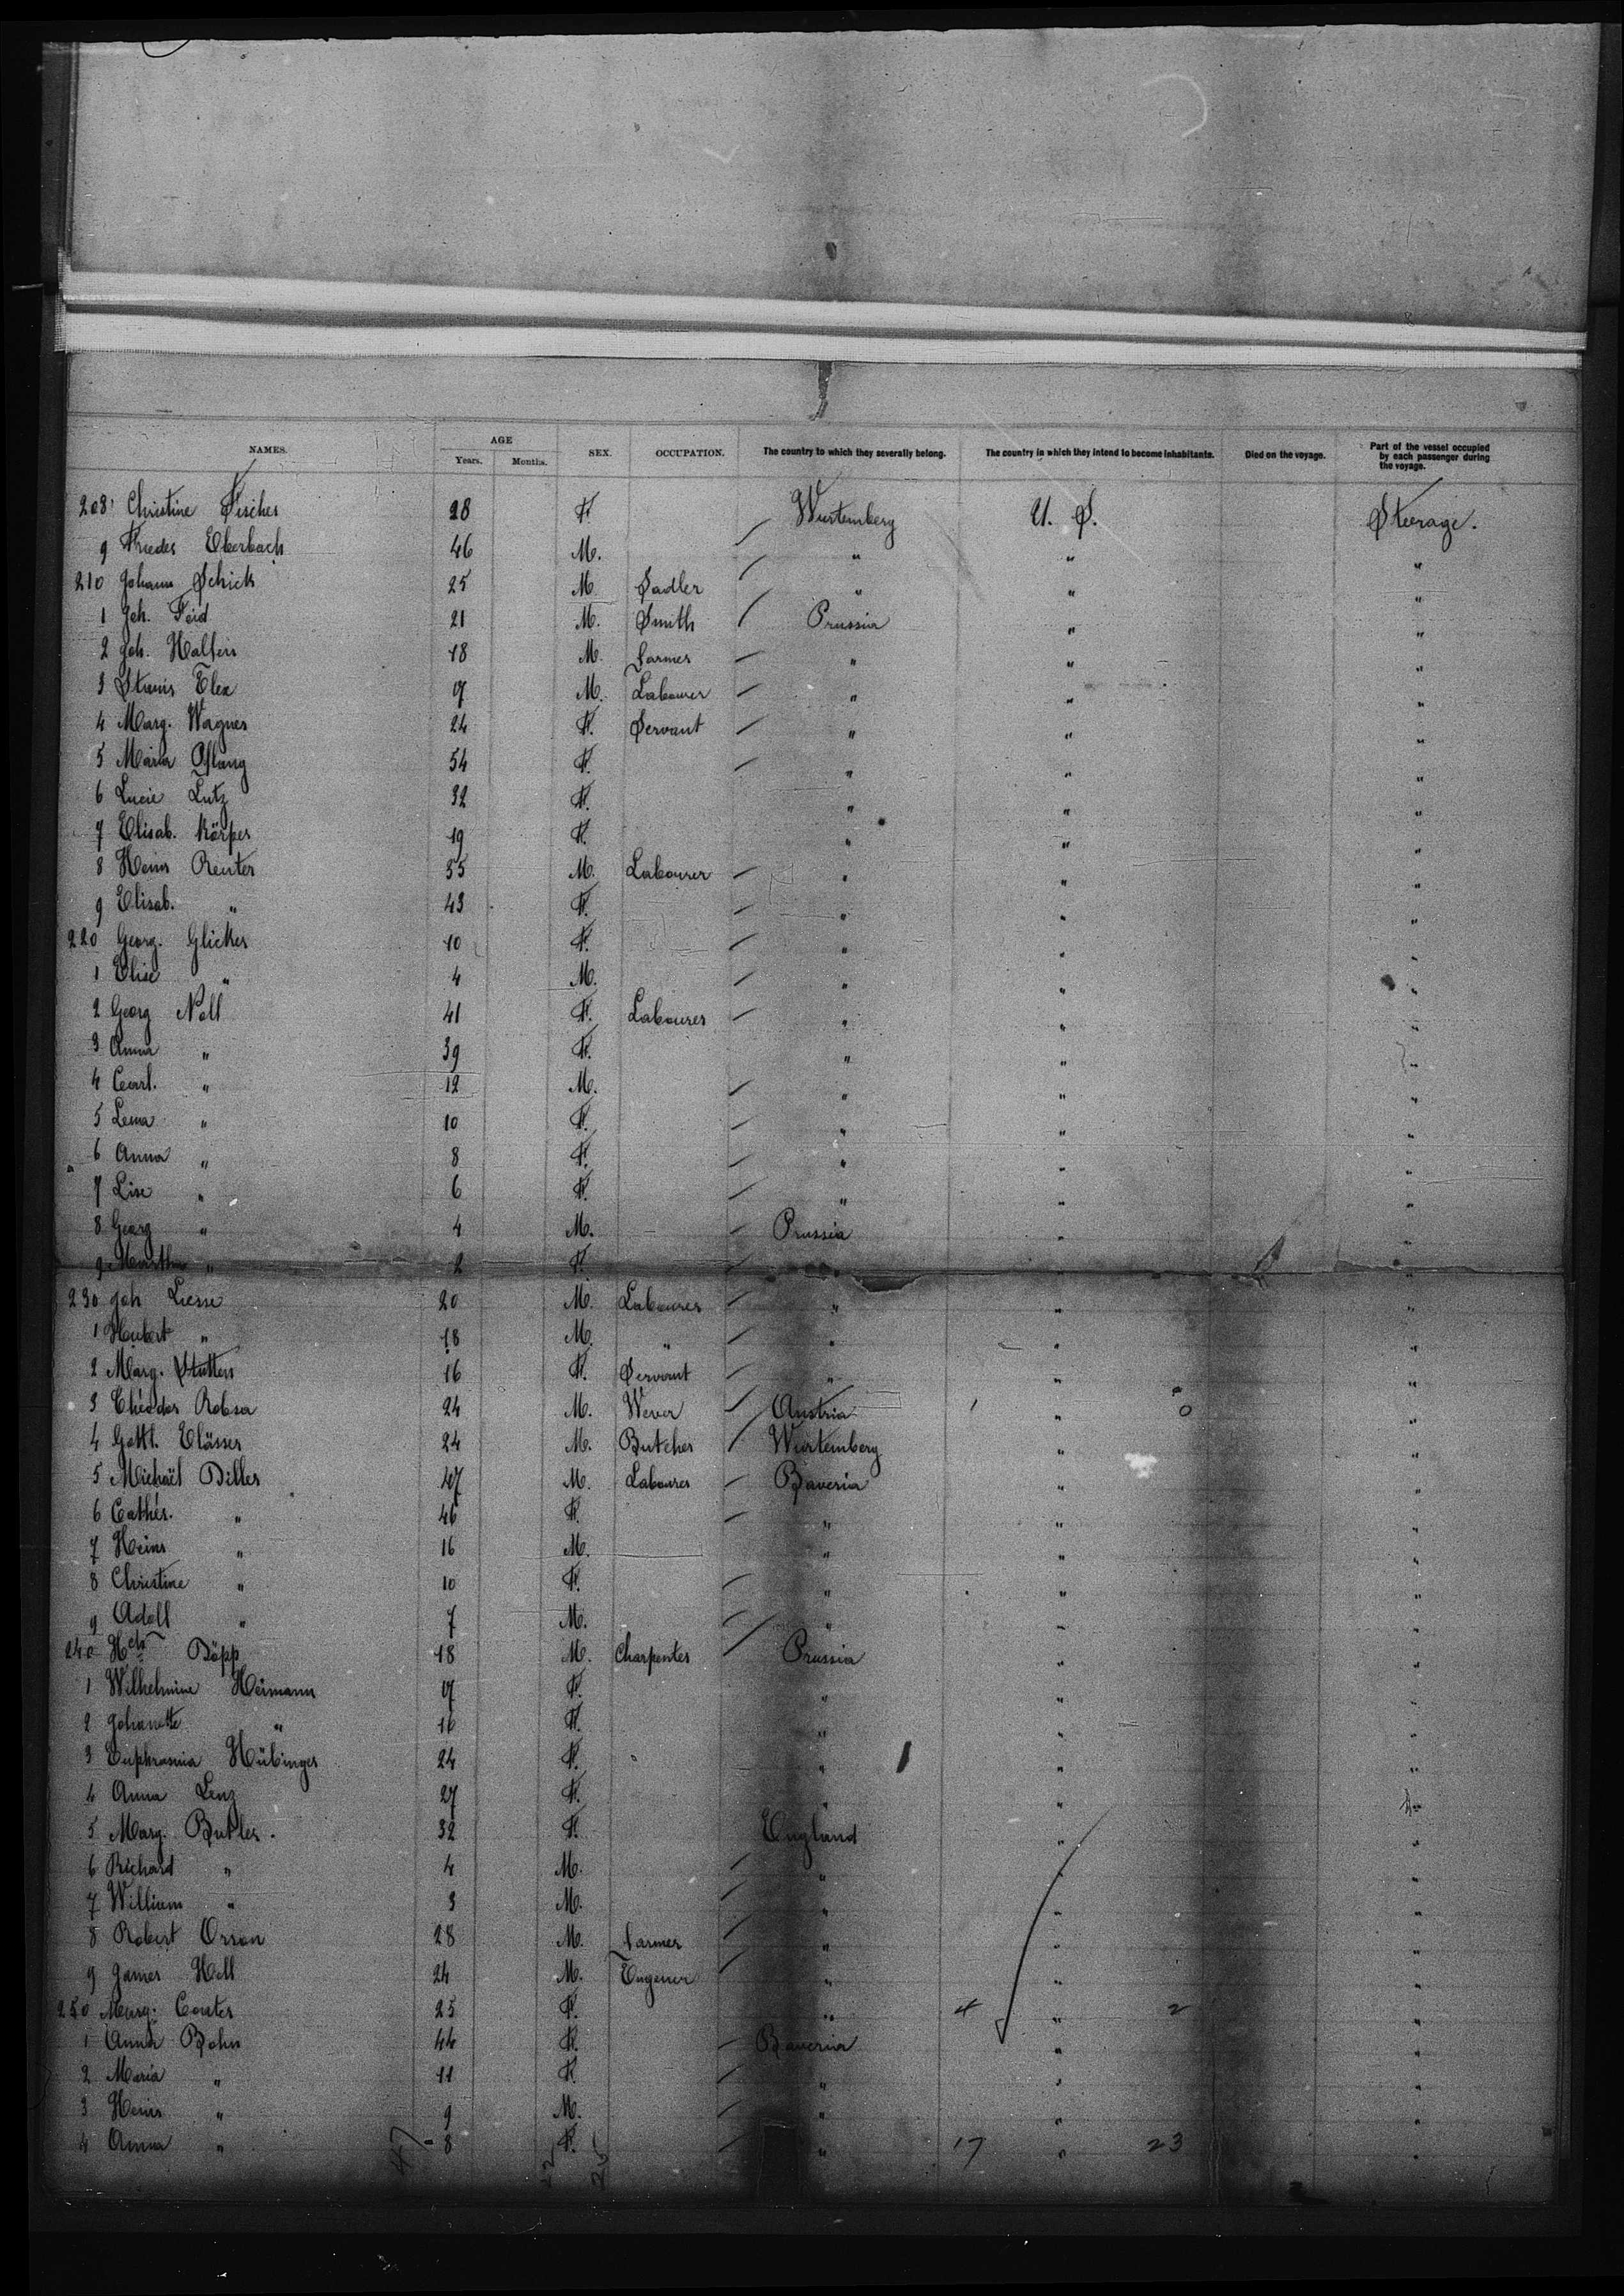 NAMES. AGE SEX. OCCUPATION. The country to which they severally belong. The country in which they intend to become inhabitants. Died on the voyage. Part of the vessel occupied by each passenger during the voyage.
Years. Months.
208 Christine Fischer 28 F. Wurtemberg U. S. Steerage.
9 Frieder Eberbach 46 M. " " "
210 Johann Schick 25 M. Sadler " " "
1 Joh. Feid 21 M. Smith Prussia " "
2 Joh. 18 M. Farmer " " "
3 M. Labourer " " "
4 Marg. Wagner 24 F. Servant " " "
5 Maria Pflang 54 F. " " "
6 Lucie Lutz 32 F. " " "
7 Elisab. Körper 19 F. " " "
8 Heinr Reuter 55 M. Labourer " " "
9 Elisab. " 43 F. " " "
220 Georg. Glicker 10 F. " " "
1 Elise " 4 M. " " "
2 Georg Noll 41 F. Labourer " " "
3 Anna " 39 F. " " "
4 Carl. " 12 M. " " "
5 Lena " 10 F. " " "
6 Anna " 8 F. " " "
7 Lise " 6 F. " " "
8 Georg " 4 M. Prussia " "
9 Martha " 2 F. " " "
230 Joh Liesse 20 M. Labourer " " "
1 Hubert " 18 M. " " " "
2 Marg. 16 F. Servant " " "
3 Theodor Robsa 24 M. Wever Austria 1 " 0 "
4 Gottl. Elässer 24 M. Butcher Wurtemberg " "
5 Michaël Diller 47 M. Labourer Baveria " "
6 Cather. " 46 F. " " "
7 Heinr " 16 M. " " "
8 Christine " 10 F. " " "
9 Adolf " 7 M. " " "
240 Hch Döpp 18 M. Charpenter Prussia " "
1 Wilhelmine Heimann F. " " "
2 Johanette " 16 F. " " "
3 Euphrasina Hübinger 24 F. " " "
4 Anna Lenz 27 F. " " "
5 Marg. Butler. 32 F. England " "
6 Richard " 4 M. " " "
7 William " 3 M. " " "
8 Robert Orson 28 M. Farmer " " "
9 James Hell 24 M. Engener " " "
250 Marg. Coates 25 F. " 4 " 2 "
1 Anna Bohn 44 F. Baveria " "
2 Maria " 11 F. " " "
3 Heinr " 9 M. " " "
4 Anna " 8 F. " 17 " 23 "
47 22 25